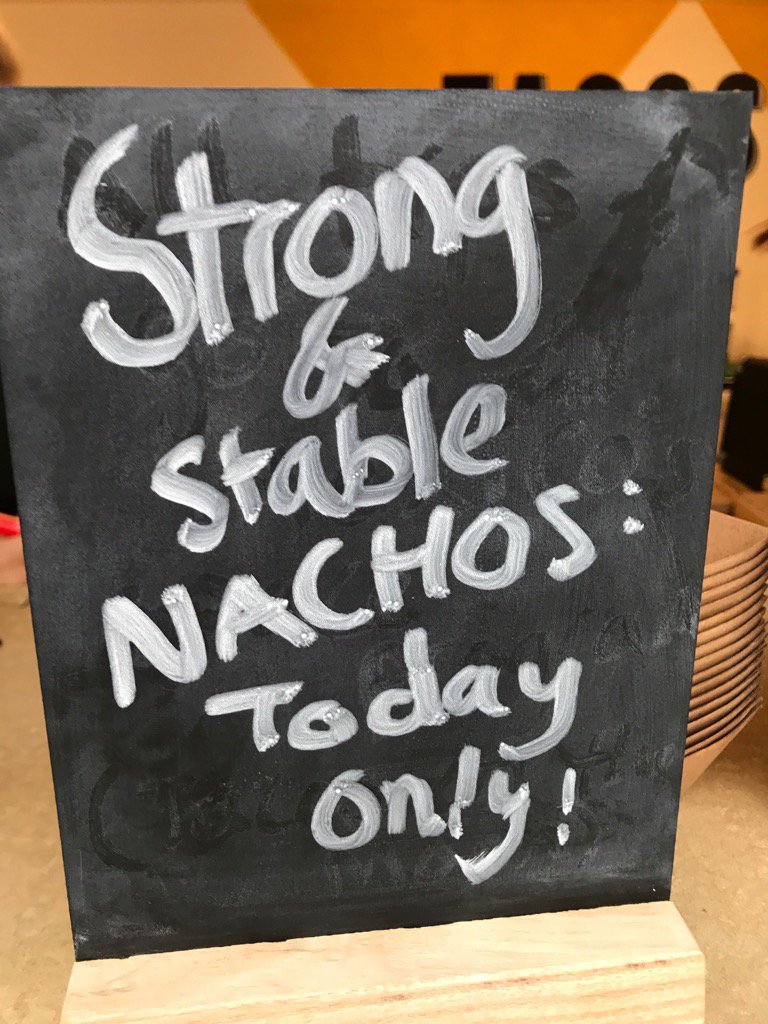 Strong
&
Stable
NACHOS:
Today
only!